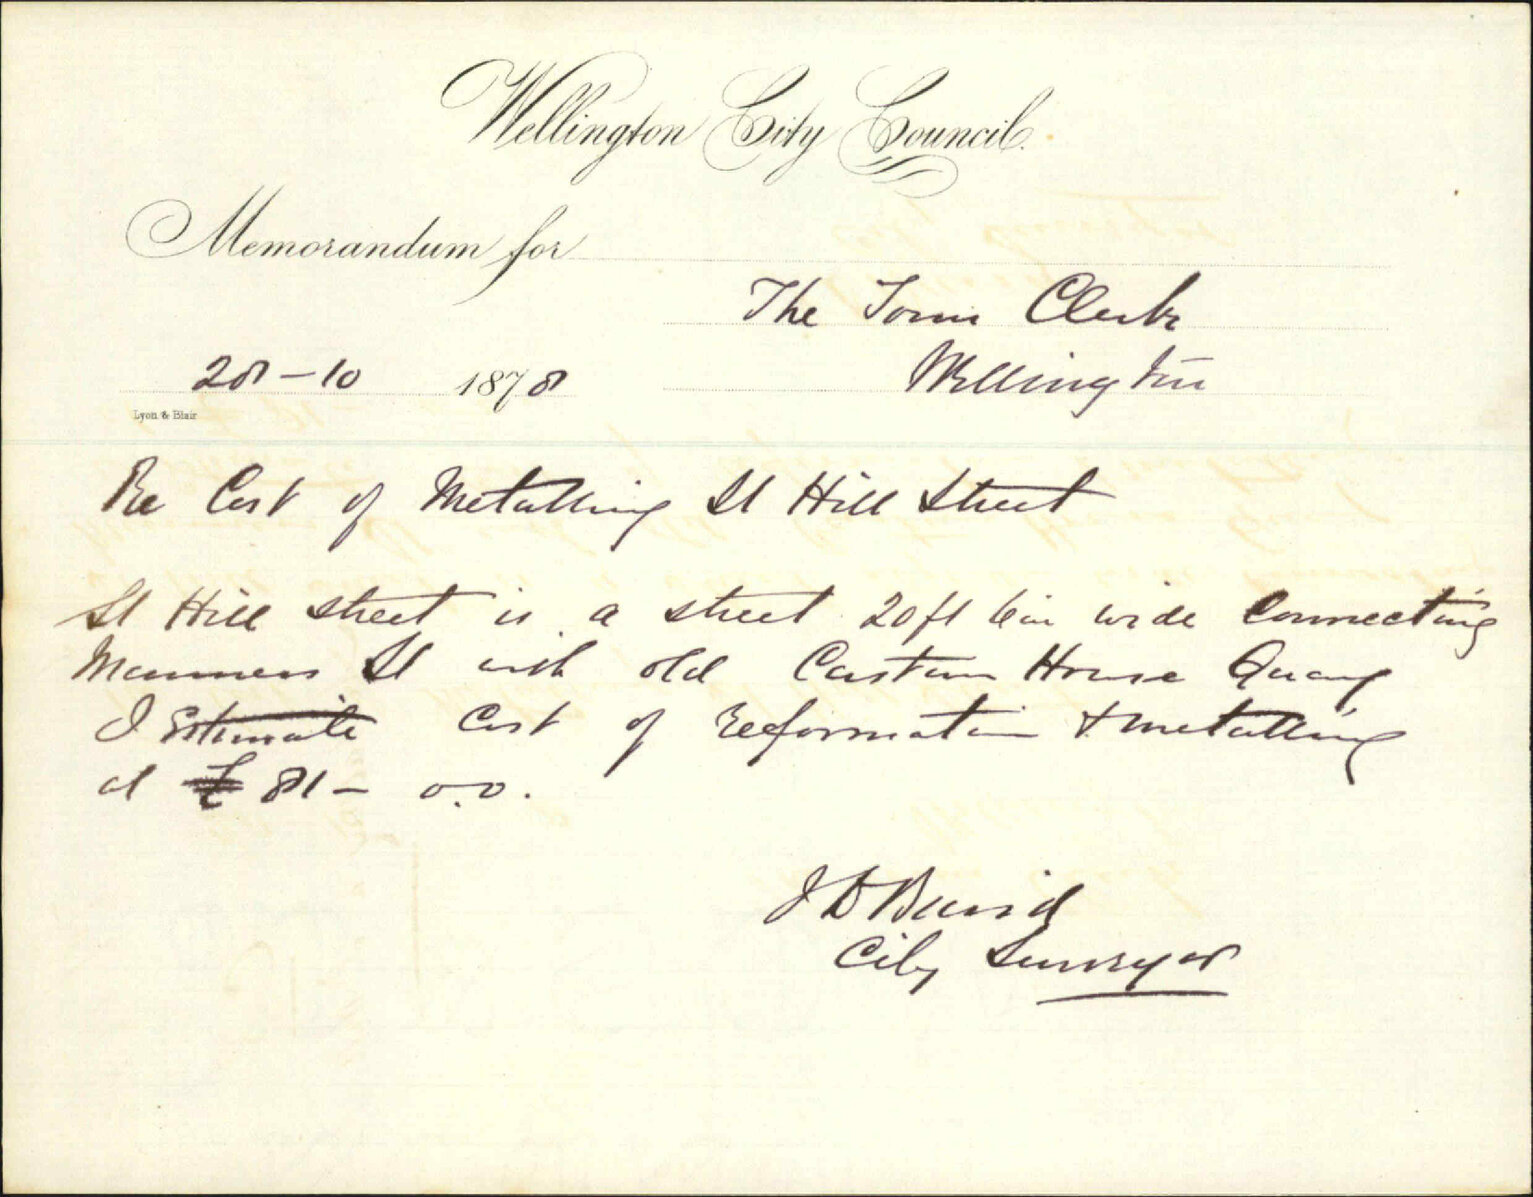 Wellington City Council.
Memorandum for
The Town Clerk
28-10 1878 Wellington
Lyon & Blair
Re Cost of Metalling St Hill Street
St Hill street is a street 20ft 6in wide Connecting
Manners St with old Custom House Quay
I Estimate Cost of reformation & metalling
at £81- 0.0.
J D Baird
City Surveyor